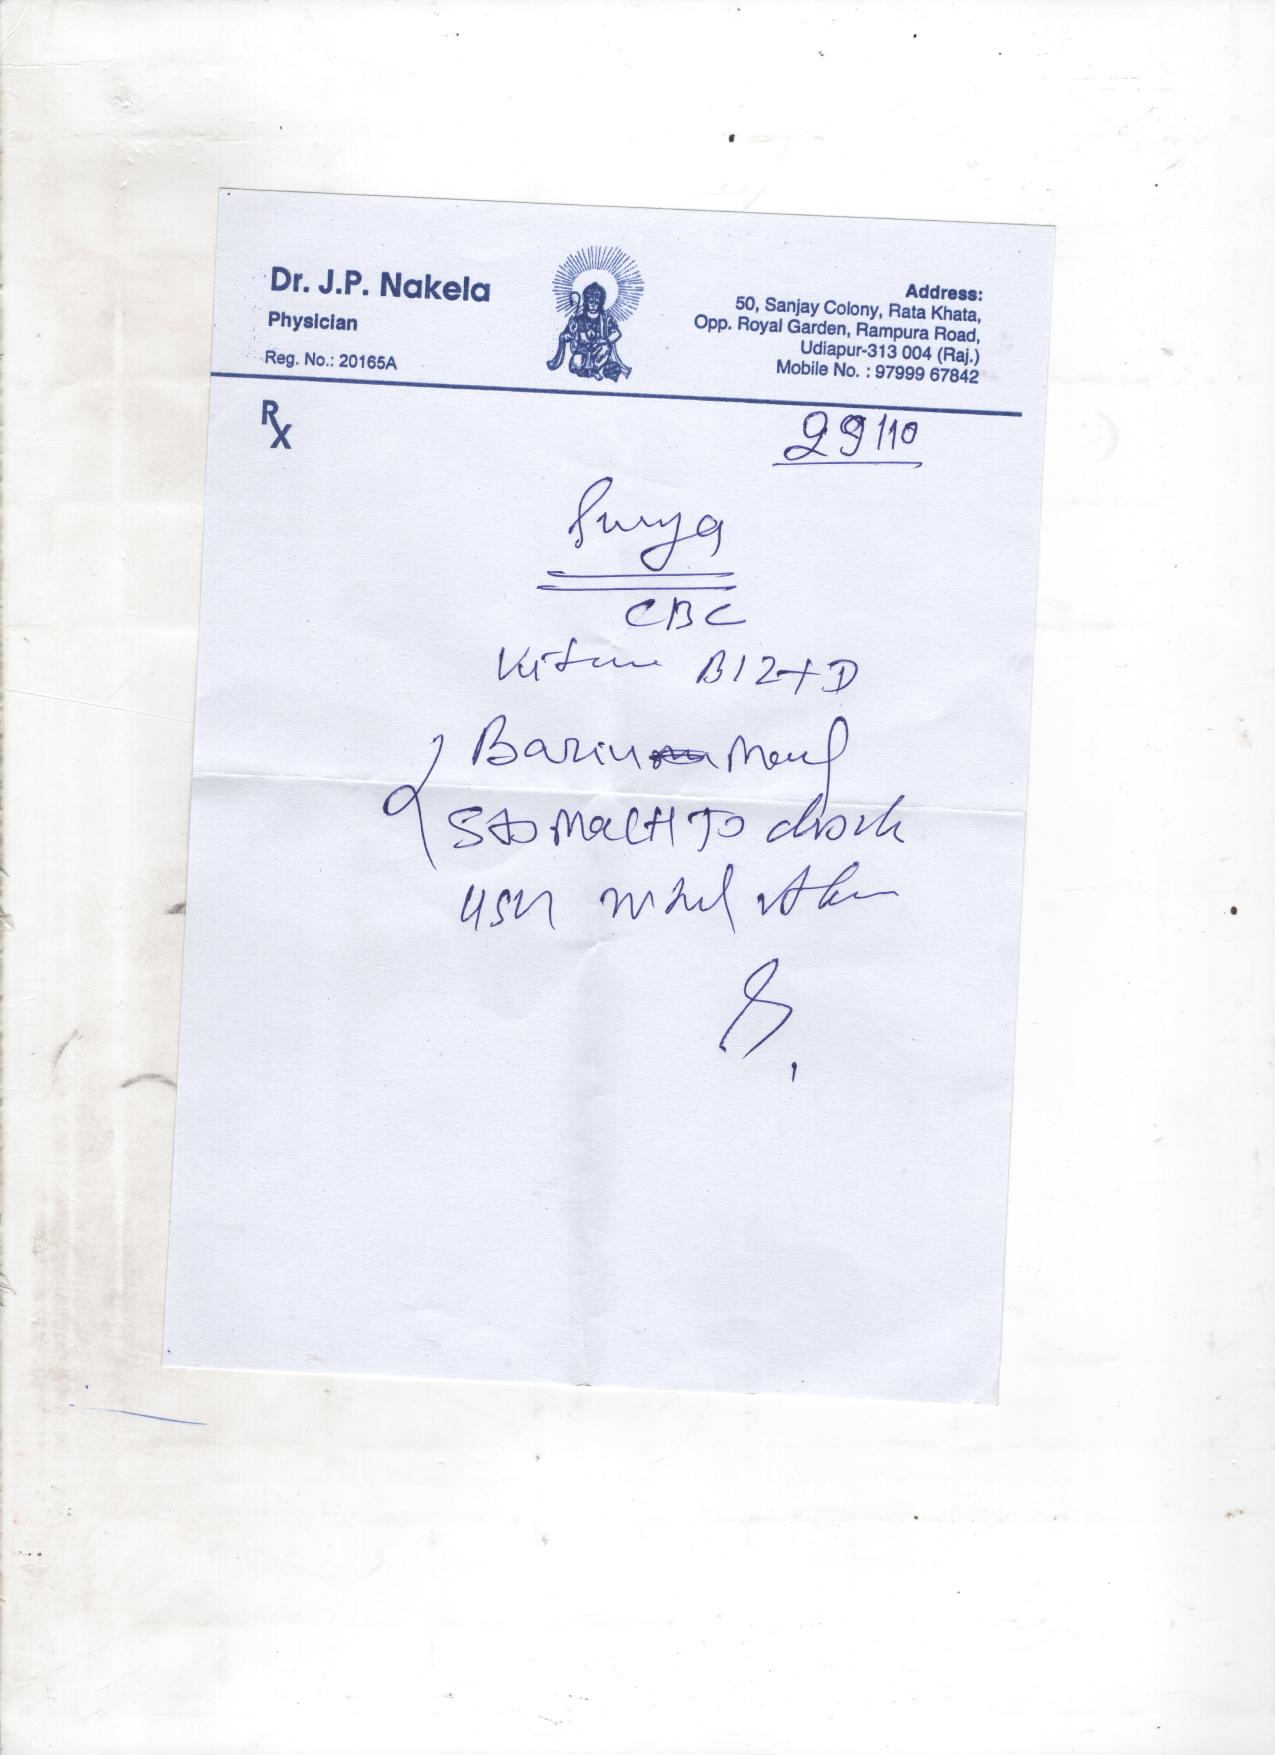 Dr. J.P. Nakela
Physician
Reg. No.: 20165A
Address:
50, Sanjay Colony, Rata Khata,
Opp. Royal Garden, Rampura Road,
Udiapur-313 004 (Raj.)
Mobile No. : 97999 67842
Rx
29/10
Surya
CBC
B12+D
Barium Meal
STOMACH TO
USG